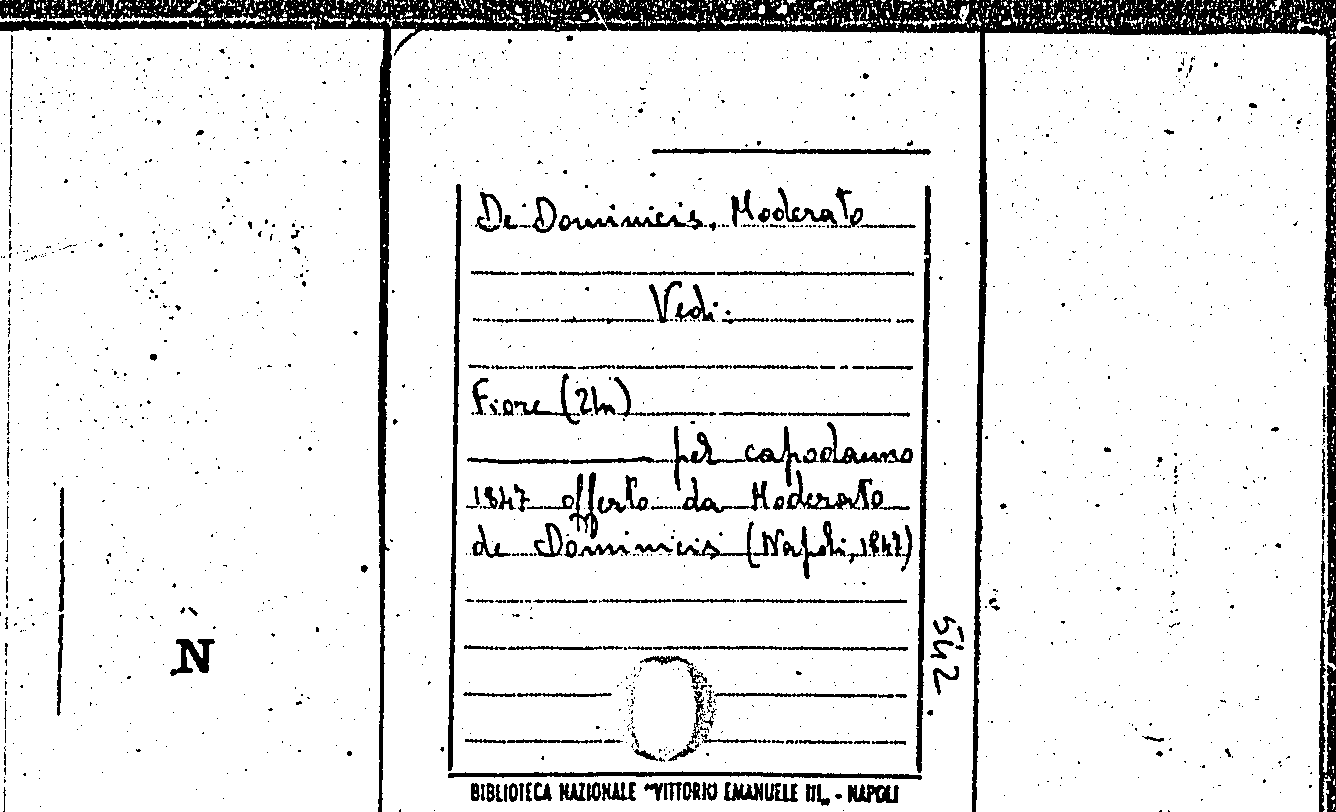 De Dominicis, Moderato
Vedi:
Fiore (Un)
per capodanno
1847 offerto da Moderato
de Dominicis (Napoli, 1847)
542.
N
BIBLIOTECA NAZIONALE "VITTORIO EMANUELE III„ - NAPOLI